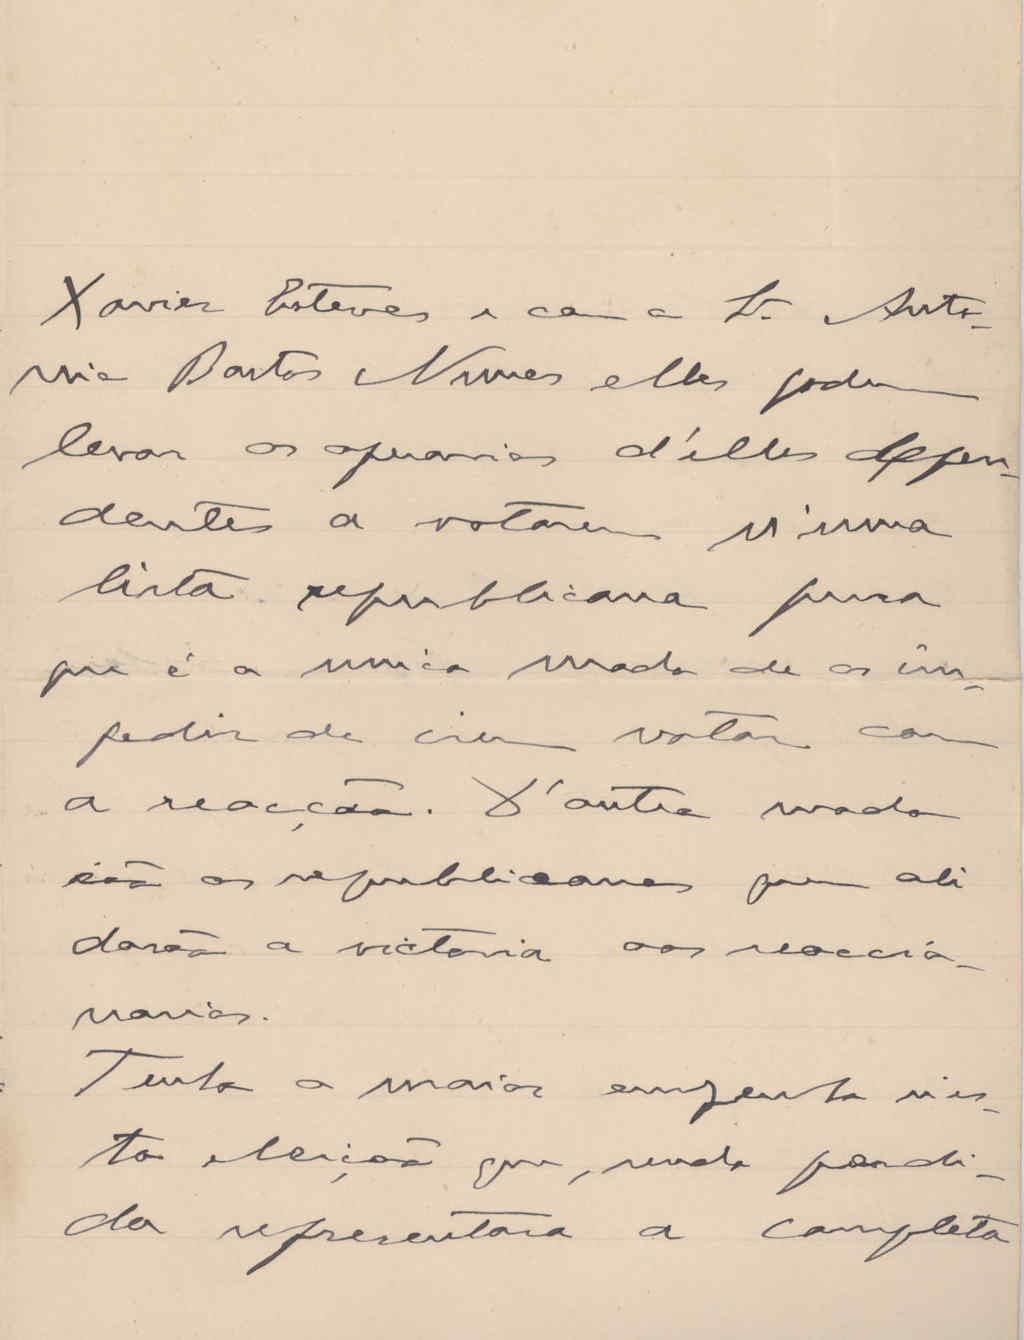 Xavier Esteves e com o Sr. Anto-
nio Bastos Nunes elles podem
levar os operarios d'elles depen-
dentes a votarem n'uma
lista republicana pura
que é o unico modo de os im-
pedir de irem votar com
a reacção. D'outro modo
são os republicanos quem ali
darão a victoria aos reaccio-
narios.
Tenho o maior empenho nes-
ta eleição que, sendo perdi-
da representará a completa